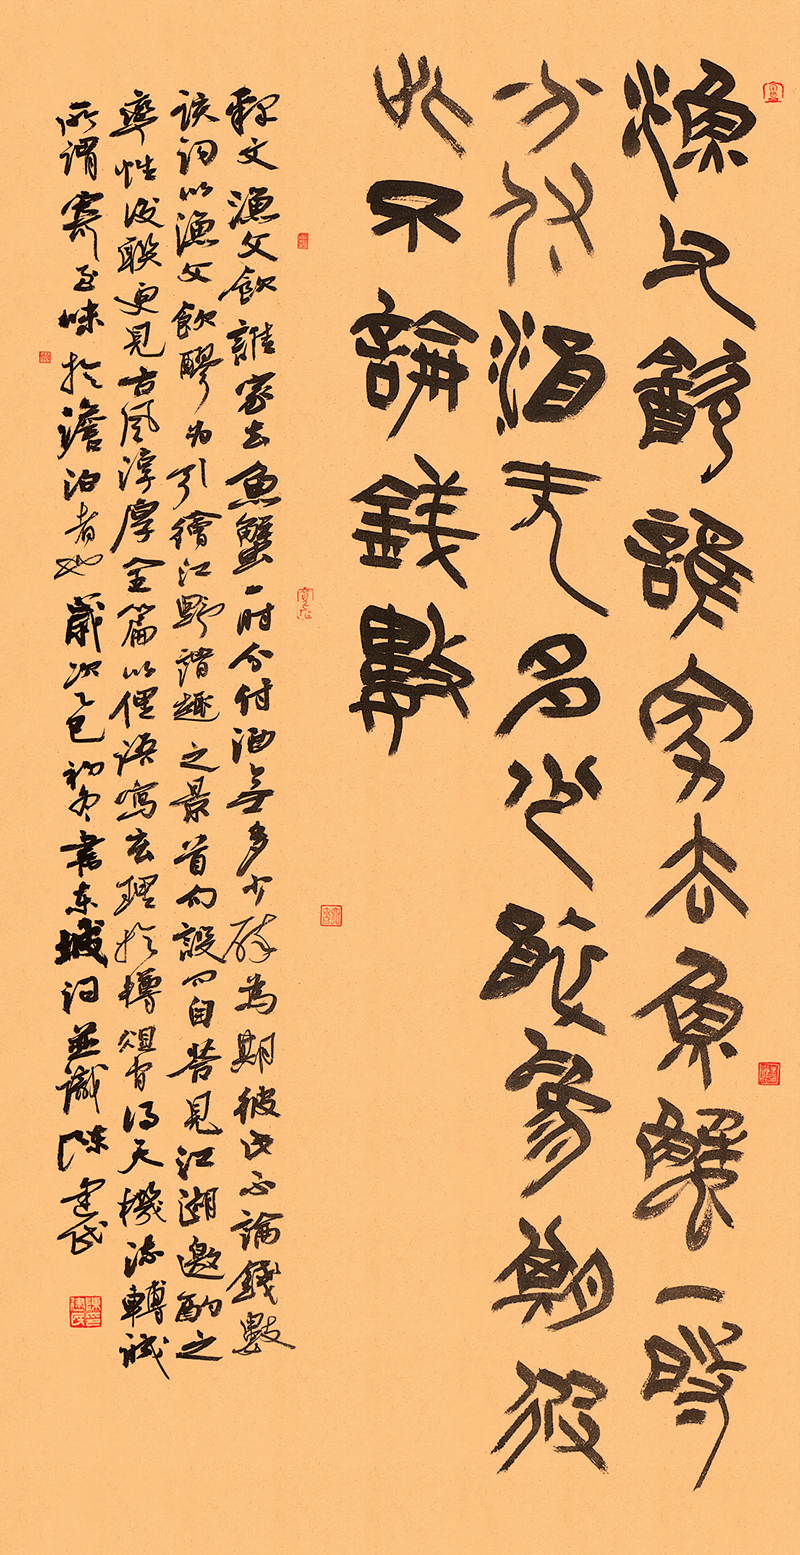 漁父飲誰家去魚蟹一時
分付酒无多少醉爲期彼
此不論錢數
釋文漁父飲誰家去魚蟹一時分付酒無多少醉為期彼此不論錢數
該詞以漁父飲醪为引繪江野諧趣之景首句設問自答見江湖邀酌之
率性後聯更見古風淳厚全篇以俚語寫玄理於樽俎間得天機流轉誠
所謂寄至味於澹泊者也歲次乙巳初冬書東坡词並識陳建民